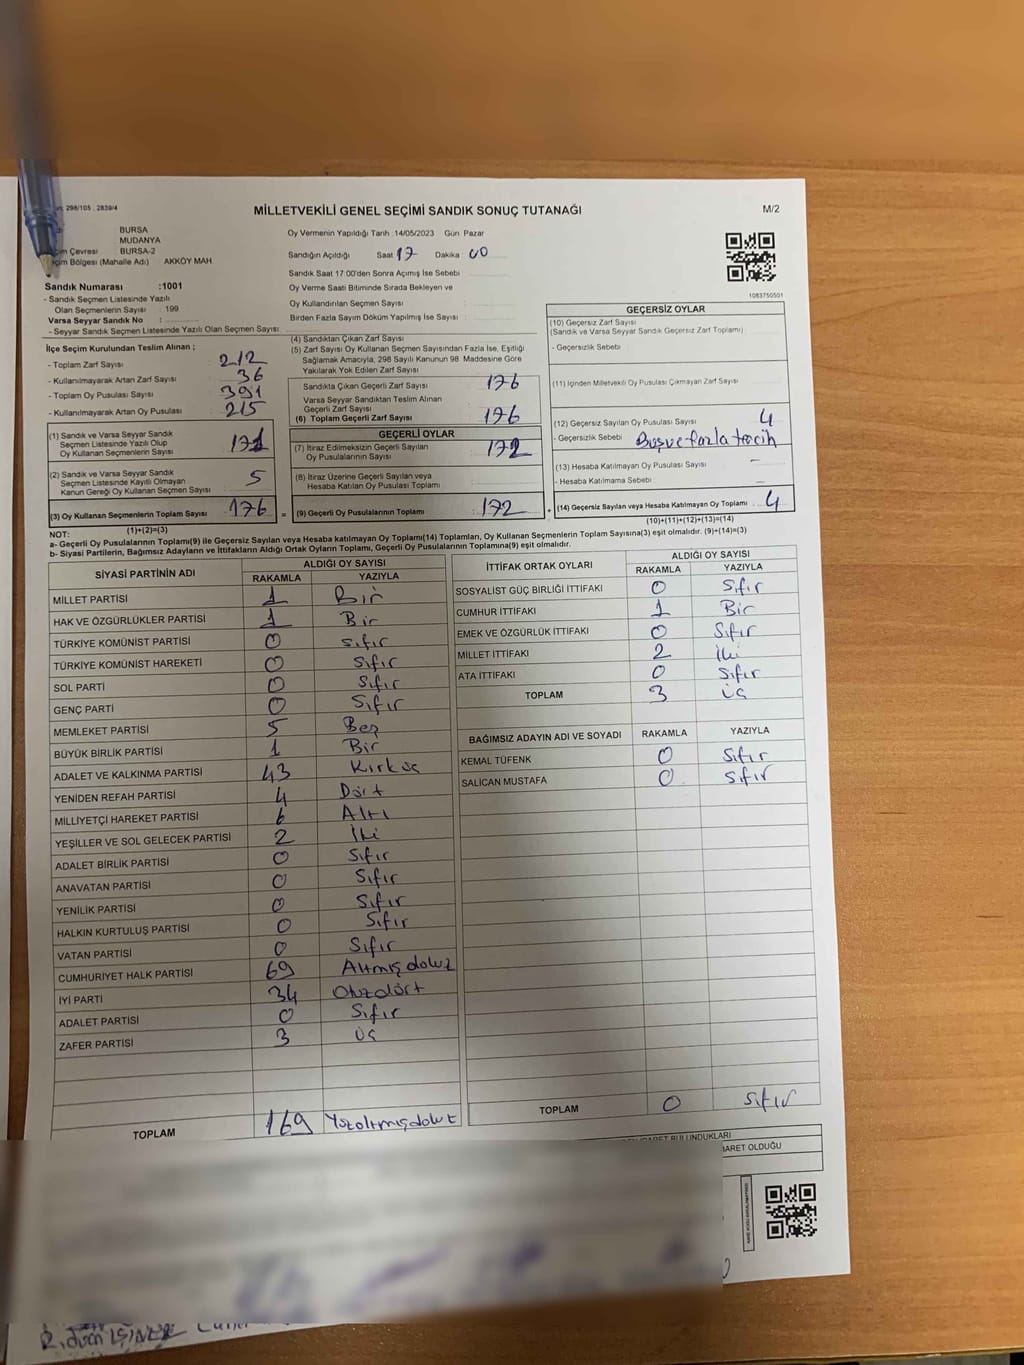 298/105 . 2839/4
MİLLETVEKİLİ GENEL SEÇİMİ SANDIK SONUÇ TUTANAĞI
M/2
BURSA
MUDANYA
Çevresi BURSA-2
Bölgesi (Mahalle Adı) AKKÖY MAH.
Sandık Numarası :1001
- Sandık Seçmen Listesinde Yazılı
Olan Seçmenlerin Sayısı : 199
Varsa Seyyar Sandık No :
- Seyyar Sandık Seçmen Listesinde Yazılı Olan Seçmen Sayısı:
Oy Vermenin Yapıldığı Tarih :14/05/2023 Gün: Pazar
Sandığın Açıldığı Saat 17 Dakika 00
Sandık Saat 17:00'den Sonra Açımış İse Sebebi
Oy Verme Saati Bitiminde Sırada Bekleyen ve
Oy Kullandırılan Seçmen Sayısı
Birden Fazla Sayım Döküm Yapılmış İse Sayısı :
1083750501
İlçe Seçim Kurulundan Teslim Alınan ;
- Toplam Zarf Sayısı 212
- Kullanılmayarak Artan Zarf Sayısı 36
- Toplam Oy Pusulası Sayısı 391
- Kullanılmayarak Artan Oy Pusulası 215
(1) Sandık ve Varsa Seyyar Sandık
Seçmen Listesinde Yazılı Olup
Oy Kullanan Seçmenlerin Sayısı 171
(2) Sandık ve Varsa Seyyar Sandık
Seçmen Listesinde Kayıtlı Olmayan
Kanun Gereği Oy Kullanan Seçmen Sayısı 5
(3) Oy Kullanan Seçmenlerin Toplam Sayısı 176 =
(1)+(2)=(3)
(4) Sandıktan Çıkan Zarf Sayısı
(5) Zarf Sayısı Oy Kullanan Seçmen Sayısından Fazla İse, Eşitliği
Sağlamak Amacıyla, 298 Sayılı Kanunun 98 Maddesine Göre
Yakılarak Yok Edilen Zarf Sayısı
Sandıkta Çıkan Geçerli Zarf Sayısı 176
Varsa Seyyar Sandıktan Teslim Alınan
Geçerli Zarf Sayısı
(6) Toplam Geçerli Zarf Sayısı 176
GEÇERLİ OYLAR
(7) İtiraz Edilmeksizin Geçerli Sayılan
Oy Pusulalarının Sayısı 172
(8) İtiraz Üzerine Geçerli Sayılan veya
Hesaba Katılan Oy Pusulası Toplamı
(9) Geçerli Oy Pusulalarının Toplamı 172 +
GEÇERSİZ OYLAR
(10) Geçersiz Zarf Sayısı
(Sandık ve Varsa Seyyar Sandık Geçersiz Zarf Toplamı)
- Geçersizlik Sebebi
(11) İçinden Milletvekili Oy Pusulası Çıkmayan Zarf Sayısı
(12) Geçersiz Sayılan Oy Pusulası Sayısı 4
- Geçersizlik Sebebi Boş ve fazla tercih
(13) Hesaba Katılmayan Oy Pusulası Sayısı -
- Hesaba Katılmama Sebebi -
(14) Geçersiz Sayılan veya Hesaba Katılmayan Oy Toplamı 4
(10)+(11)+(12)+(13)=(14)
NOT:
a- Geçerli Oy Pusulalarının Toplamı(9) ile Geçersiz Sayılan veya Hesaba katılmayan Oy Toplamı(14) Toplamları, Oy Kullanan Seçmenlerin Toplam Sayısına(3) eşit olmalıdır. (9)+(14)=(3)
b- Siyasi Partilerin, Bağımsız Adayların ve İttifakların Aldığı Ortak Oyların Toplamı, Geçerli Oy Pusulalarının Toplamına(9) eşit olmalıdır.
SİYASİ PARTİNİN ADI
ALDIĞI OY SAYISI
RAKAMLA YAZIYLA
MİLLET PARTİSİ 1 Bir
HAK VE ÖZGÜRLÜKLER PARTİSİ 1 Bir
TÜRKİYE KOMÜNİST PARTİSİ 0 sıfır
TÜRKİYE KOMÜNİST HAREKETİ 0 Sıfır
SOL PARTİ 0 Sıfır
GENÇ PARTİ 0 Sıfır
MEMLEKET PARTİSİ 5 Beş
BÜYÜK BİRLİK PARTİSİ 1 Bir
ADALET VE KALKINMA PARTİSİ 43 Kırküç
YENİDEN REFAH PARTİSİ 4 Dört
MİLLİYETÇİ HAREKET PARTİSİ 6 Altı
YEŞİLLER VE SOL GELECEK PARTİSİ 2 İki
ADALET BİRLİK PARTİSİ 0 Sıfır
ANAVATAN PARTİSİ 0 Sıfır
YENİLİK PARTİSİ 0 Sıfır
HALKIN KURTULUŞ PARTİSİ 0 Sıfır
VATAN PARTİSİ 0 Sıfır
CUMHURİYET HALK PARTİSİ 69 Altmışdokuz
İYİ PARTİ 34 Otuzdört
ADALET PARTİSİ 0 Sıfır
ZAFER PARTİSİ 3 üç
TOPLAM 169 Yüzaltmışdokuz
İTTİFAK ORTAK OYLARI
ALDIĞI OY SAYISI
RAKAMLA YAZIYLA
SOSYALİST GÜÇ BİRLİĞİ İTTİFAKI 0 Sıfır
CUMHUR İTTİFAKI 1 Bir
EMEK VE ÖZGÜRLÜK İTTİFAKI 0 Sıfır
MİLLET İTTİFAKI 2 İki
ATA İTTİFAKI 0 Sıfır
TOPLAM 3 üç
BAĞIMSIZ ADAYIN ADI VE SOYADI RAKAMLA YAZIYLA
KEMAL TÜFENK 0 Sıfır
SALİCAN MUSTAFA 0 Sıfır
TOPLAM 0 Sıfır
BULUNDUKLARI
OLDUĞU